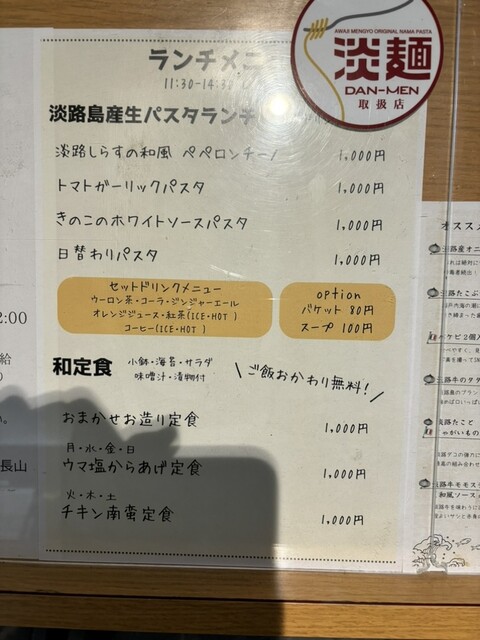 ランチメニ
11:30-14:30
AWAJI MENGYO ORIGINAL NAMA PASTA
淡麺
DAN-MEN
取扱店
淡路島産生パスタランチ
淡路しらすの和風 ペペロンチーノ 1,000円
トマトガーリックパスタ 1,000円
きのこのホワイトソースパスタ 1,000円
日替わりパスタ 1,000円
セットドリンクメニュー
ウーロン茶・コーラ・ジンジャーエール
オレンジジュース・紅茶(ICE・HOT)
コーヒー(ICE・HOT)
option
バケット 80円
スープ 100円
和定食 小鉢・海苔・サラダ
味噌汁・漬物付
\ご飯おかわり無料!/
おまかせお造り定食 1,000円
月・水・金・日
ウマ塩からあげ定食 1,000円
火・木・土
チキン南蛮定食 1,000円
2:00
給
い。
長山
オススメ
淡路産オニ
淡路たこぶ
ケピ2個入
淡路牛のタタ
淡路たこと
じゃがいもの
淡路牛モモステ
和風ソース